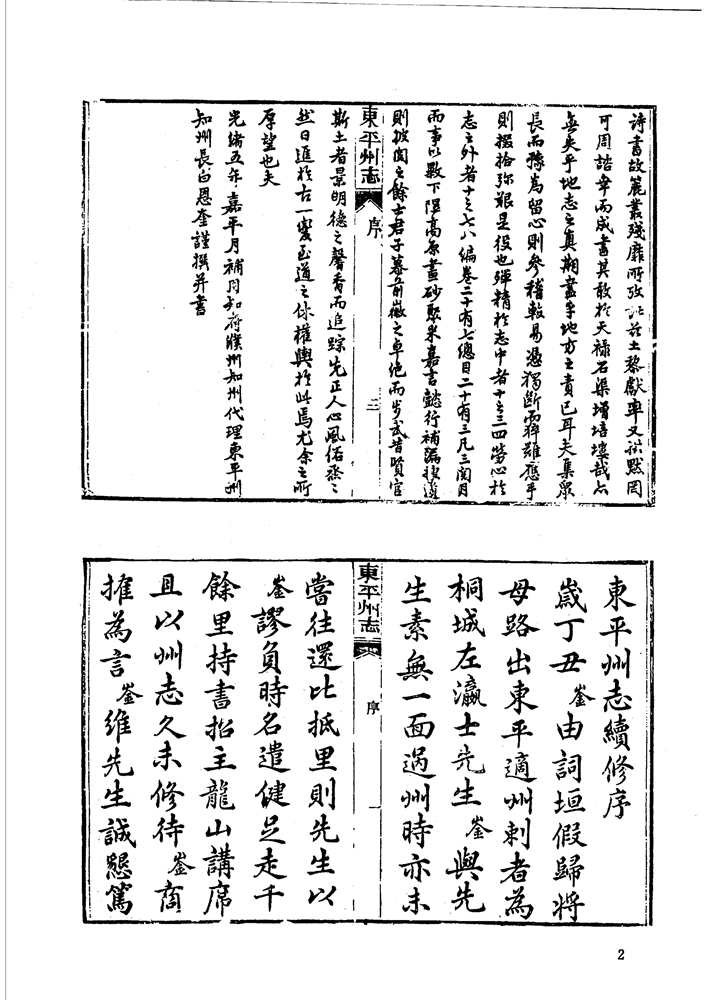 詩書故簏叢殘靡所攷訂茲土黎獻率又訥默罔
可周諮幸而成書其敢於天祿石渠增培塿哉亦
無失乎地志之真期盡乎地方之責已耳夫集眾
長而務為留心則參稽較易憑獨斷而猝難應手
則掇拾弥艱是役也殫精於志中者十之三四勞心於
志之外者十之七八編卷二十有七總目二十有三凡三閱月
而事以數下隰高原畫砂聚米嘉言懿行補漏搜遺
則披閱之餘士君子慕前徽之卓絕而步武昔賢官
東平州志
序
三
斯土者景明德之馨香而追踪先正人心風俗烝烝
然日進於古一變至道之休權輿於此焉尤余之所
厚望也夫
光緒五年嘉平月補用知府濮州知州代理東平州
知州長白恩奎謹撰并書
東平州志續修序
歲丁丑崟由詞垣假歸將
母路出東平適州刺者為
桐城左瀛士先生崟與先
生素無一面過州時亦未
東平州志
序
一
嘗往還比抵里則先生以
崟謬負時名遣健足走千
餘里持書招主龍山講席
且以州志久未修待崟商
搉為言崟維先生誠懇篤
2